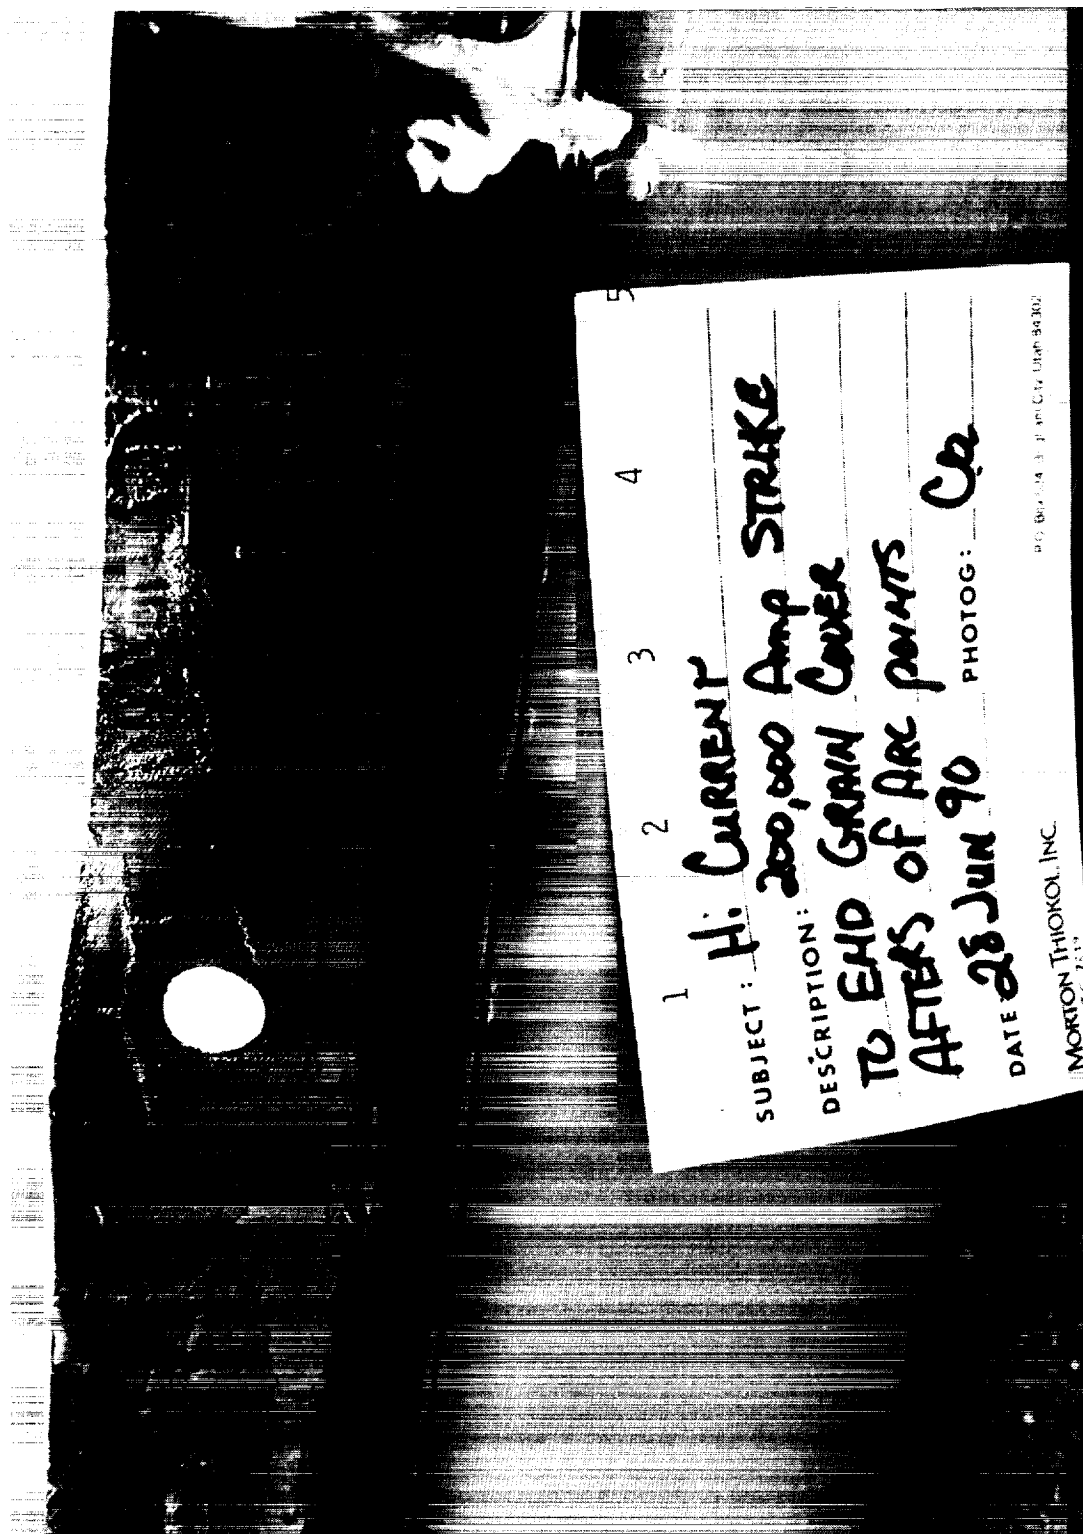 1 2 3 4 5
SUBJECT: Hi CURRENT
DESCRIPTION: 200,000 Amp STRIKE
TO END GRAIN COVER
AFTERS OF ARC POINTS
DATE 28 JUN 90 PHOTOG:
MORTON THIOKOL, INC.
Utah 84302